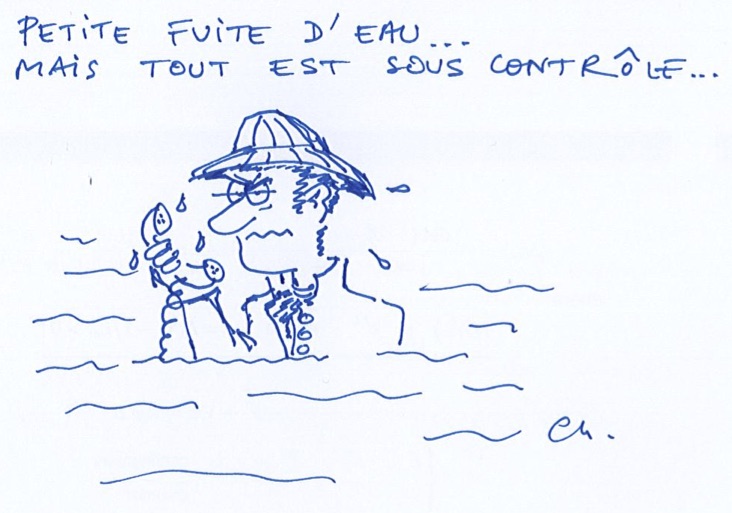 PETITE FUITE D'EAU...
MAIS TOUT EST SOUS CONTRÔLE...
Ch.